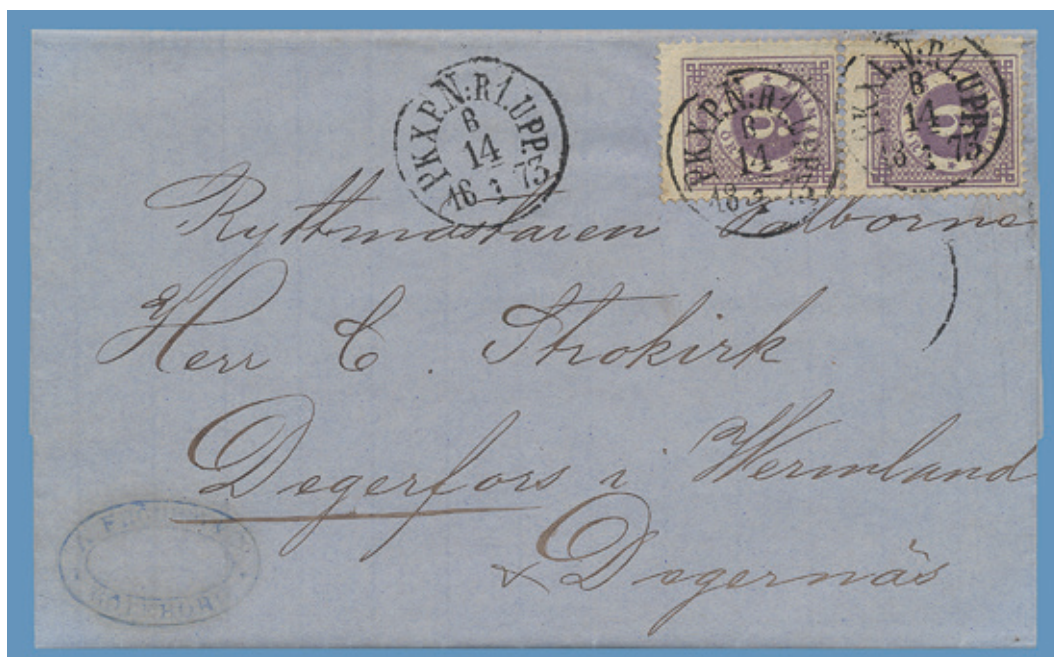 PKXP.N:R1.UPP.
8
14
18 73
PKXP.N:R1
8
14
18 73
N:R1.UPP.
8
14
18 73
Ryttmästaren Välborne
Herr C. Strokirk
Degerfors i Wermland
Degernäs